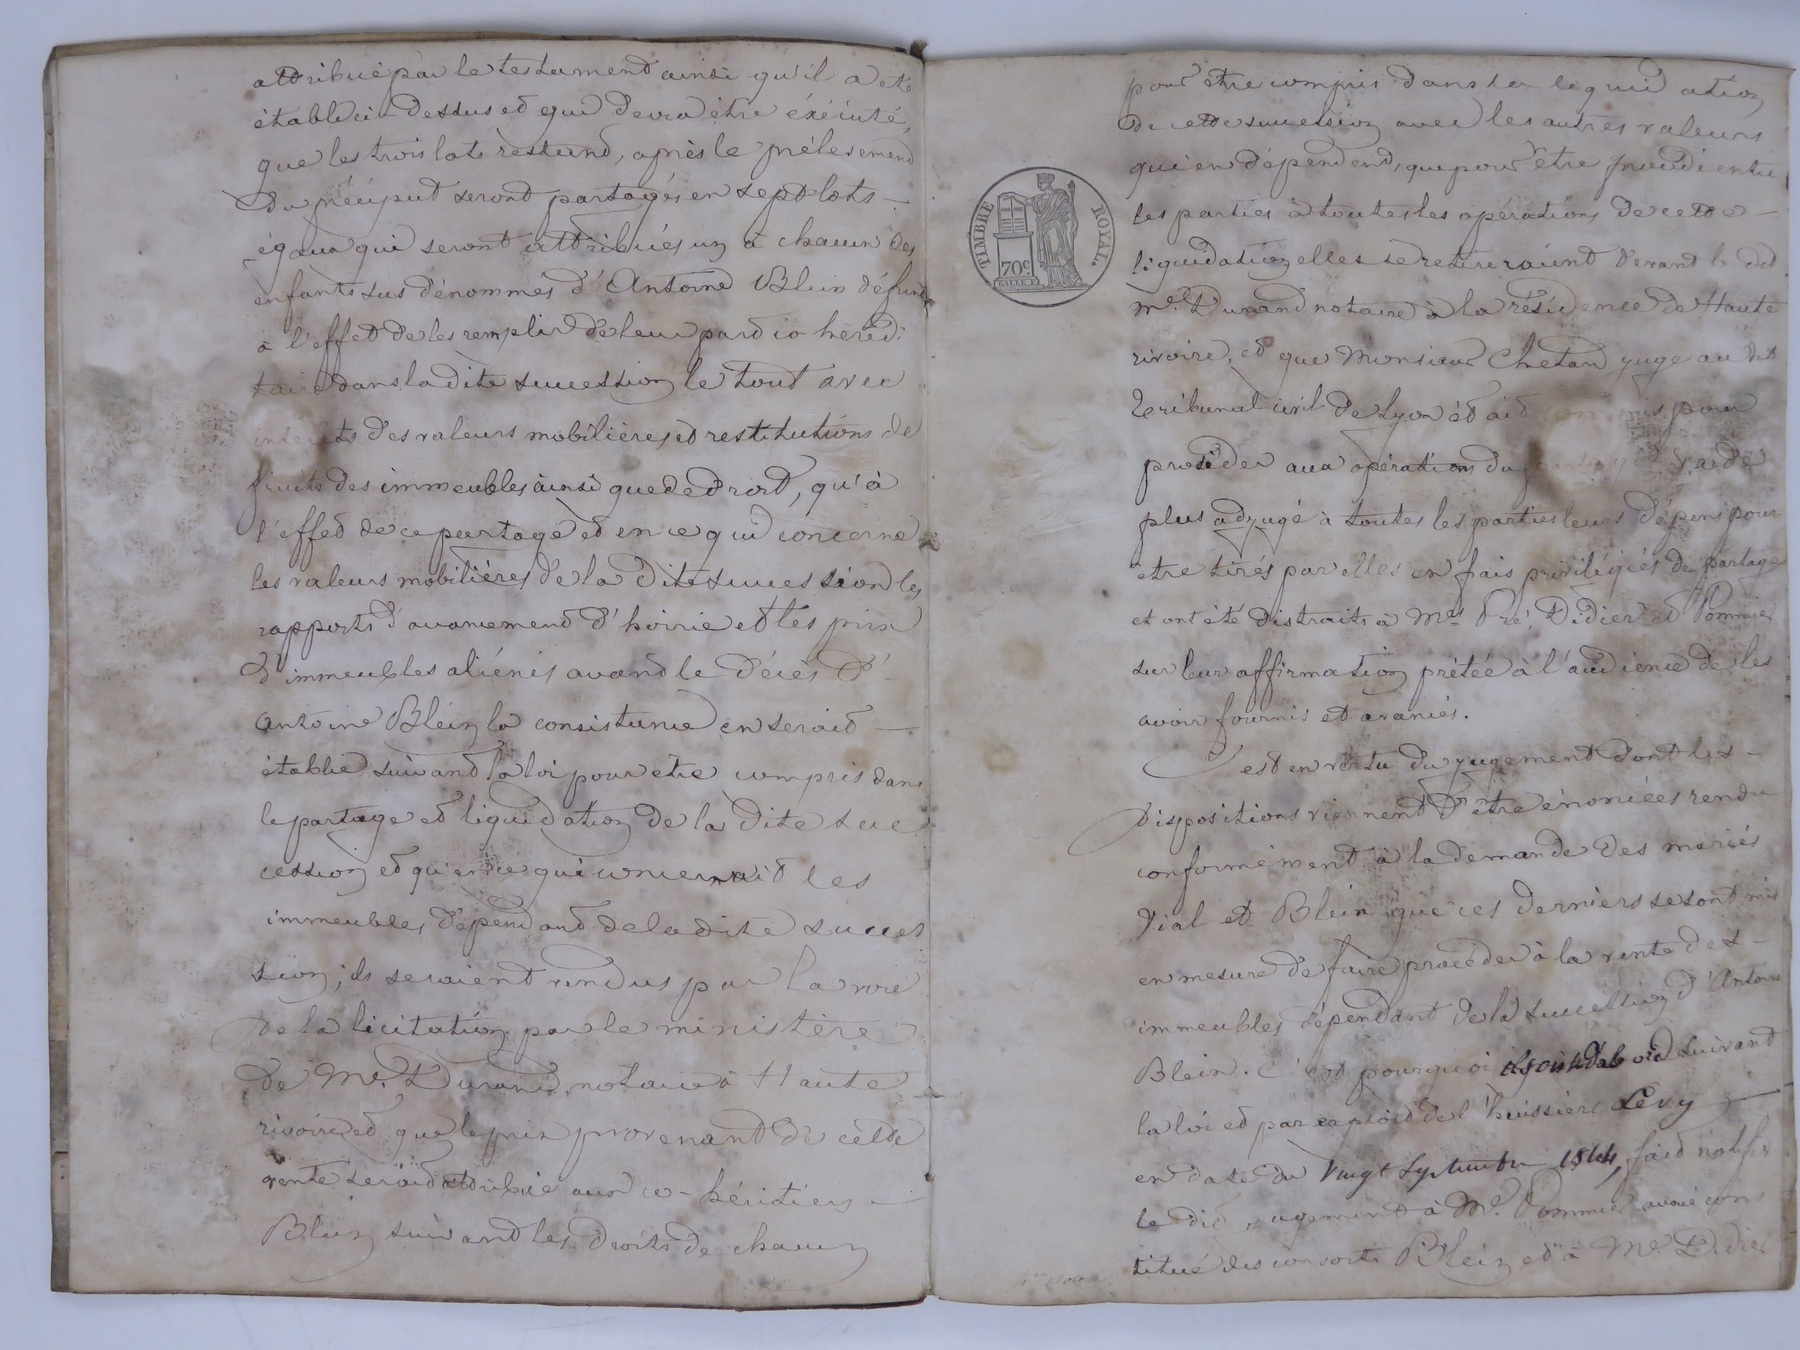 attribué par le testament ainsi qu'il a été
établi ci dessus et qui devra être éxécuté,
que les trois lots restand, après le prélevemend
du préciput seront partagés en sept lots —
égaux qui seront attribués un à chacun des
enfants sus dénommés d'Antoine Blein défund
à l'effet de les remplir de leur pard co hérédi
taire dans la dite succession le tout avec
intérêts des valeurs mobilières et restitutions de
fruits des immeubles ainsi que de droit, qu'à
l'effet de ce partage et en ce qui concerne
les valeurs mobilières de la dite succession les
rapports d'avancemend d'hoirie et les prix
d'immeubles aliénés avand le décès d'-
Antoine Blein la consistance en seraid —
établie suivand la loi pour être compris dans
le partage et liquidation de la dite suc
cession et qu'en ce qui concernaid les
immeubles dépendand de la dite succes
sion, ils seraient vendus par la voie
de la licitation par le ministère
de Me. Durand notaire à Haute
rivoire et que le prix provenant de cette
vente seraid attribué aux co-héritiers —
Blein suivand les droits de chacun
pour être compris dans la liquidation
de cette succession avec les autres valeurs
qui en dépendend, que pour être procédé entre
les parties à toutes les opérations de cette —
liquidation elles se retireraient devant le dit
Me. Durand notaire à la résidence de Haute
rivoire, et que Monsieur Chetard juge au dit
Tribunal civil de Lyon étaid commis pour
procéder aux opérations du
plus adjugé à toutes les parties leurs dépens pour
être tirés par elles en frais privilégiés de partage
et ont été distraits à Mes Pré Didier et Pommier
sur leur affirmation prêtée à l'audience de les
avoir fournis et avancés.
C'est en vertu du jugement dont les —
dispositions viennent d'être énoncées rendu
conformément à la demande des mariés
Vial et Blein que ces derniers se sont mis
en mesure de faire procéder à la vente des —
immeubles dépendant de la succession d'Antoine
Blein. C'est pourquoi ils ont d'abord suivant
la loi et par exploid de l'huissière Levy —
en date du vingt Septembre 1844, faid notifier
le dit jugement à Me. Pommier avoué cons
titué des consorts Blein et à Me Didier
TIMBRE ROYAL.
70c